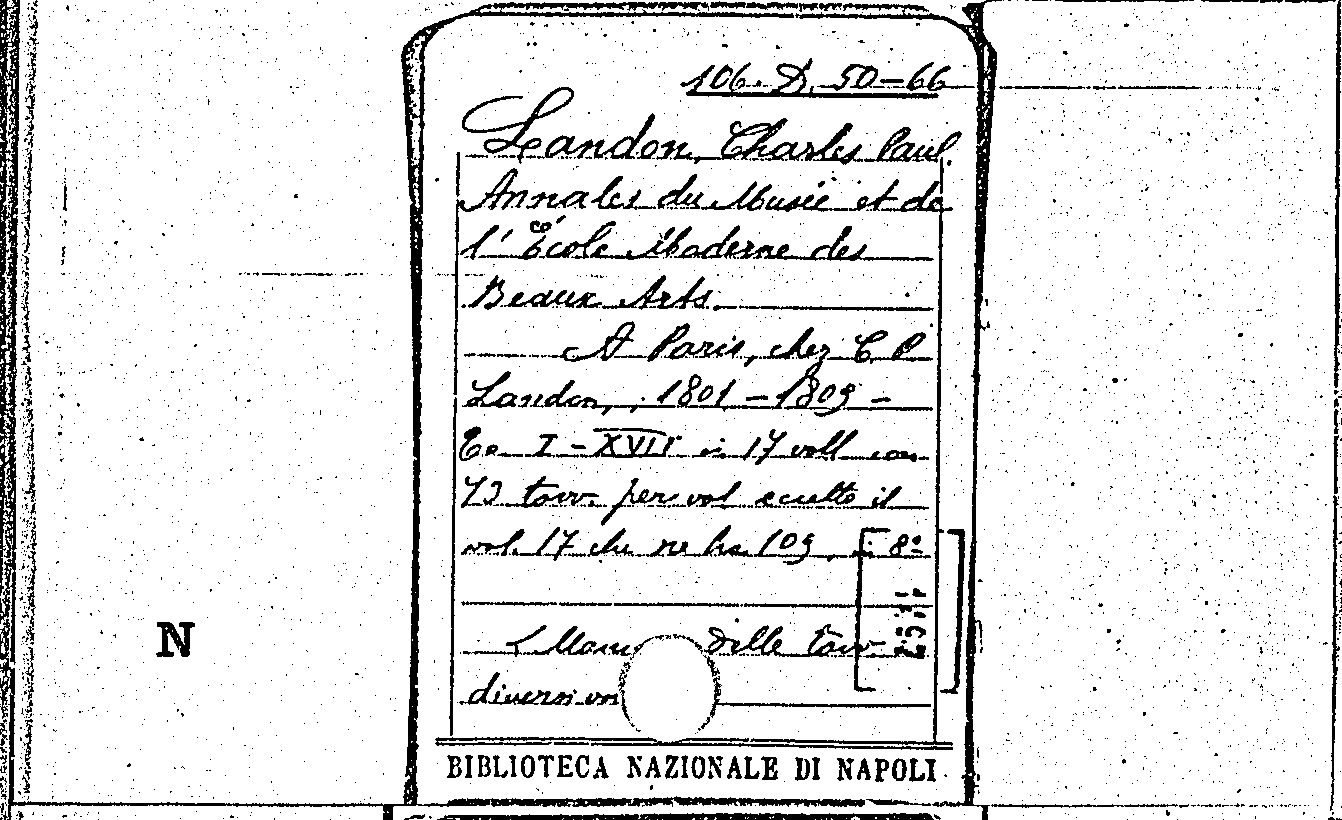 106. D. 50-66
Landon, Charles Paul.
Annales du Musée et de
l'École Moderne des
Beaux Arts.
A Paris, chez C. P.
Landon, 1801-1809-
To. I-XVII in 17 voll. con
72 tavv. per vol. eccetto il
vol. 17 che ne ha 109, in 8º
delle tavv.
diversi
N
BIBLIOTECA NAZIONALE DI NAPOLI